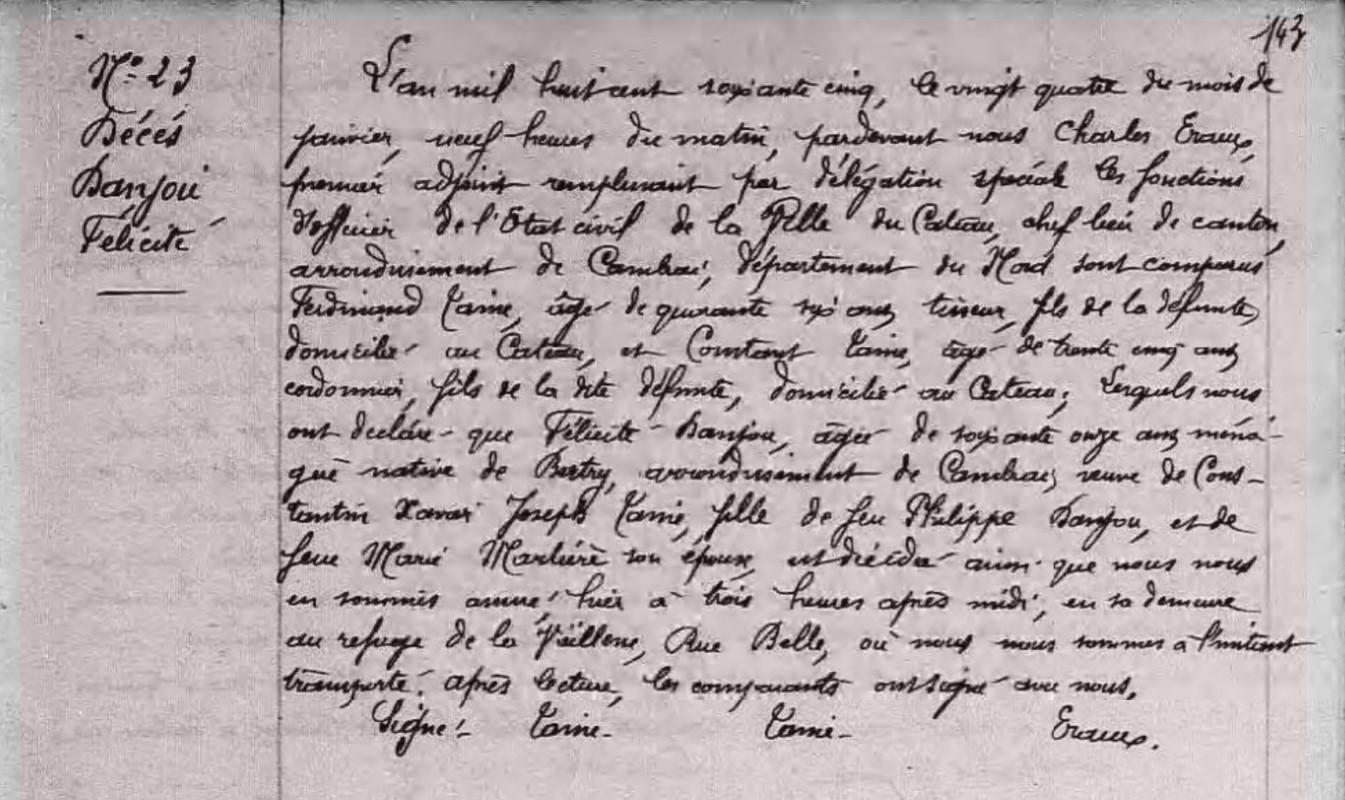 143
N° 23
Décès
Danjou
Félicité
L'an mil huit cent soixante cinq, le vingt quatre du mois de
janvier, neuf heures du matin, pardevant nous Charles Eraux,
premier adjoint remplissant par délégation spéciale les fonctions
d'officier de l'Etat civil de la Ville du Cateau, chef lieu de canton,
arrondissement de Cambrai, département du Nord sont comparus
Ferdinand Taine, âgé de quarante six ans, tisseur, fils de la défunte,
domicilié au Cateau, et Constant Taine, âgé de trente cinq ans
cordonnier, fils de la dite défunte, domicilié au Cateau; Lesquels nous
ont déclaré que Félicité Danjou, âgée de soixante onze ans, ména-
gère native de Bertry, arrondissement de Cambrai, veuve de Cons-
tantin Xavier Joseph Taine, fille de feu Philippe Danjou, et de
feue Marie Marlière son épouse, est décédée ainsi que nous nous
en sommes assuré, hier à trois heures après midi, en sa demeure
au refuge de la Vieillesse, Rue Belle, où nous nous sommes à l'instant
transporté. après lecture, les comparants ont signé avec nous.
Signé:- Taine- Taine- Eraux.